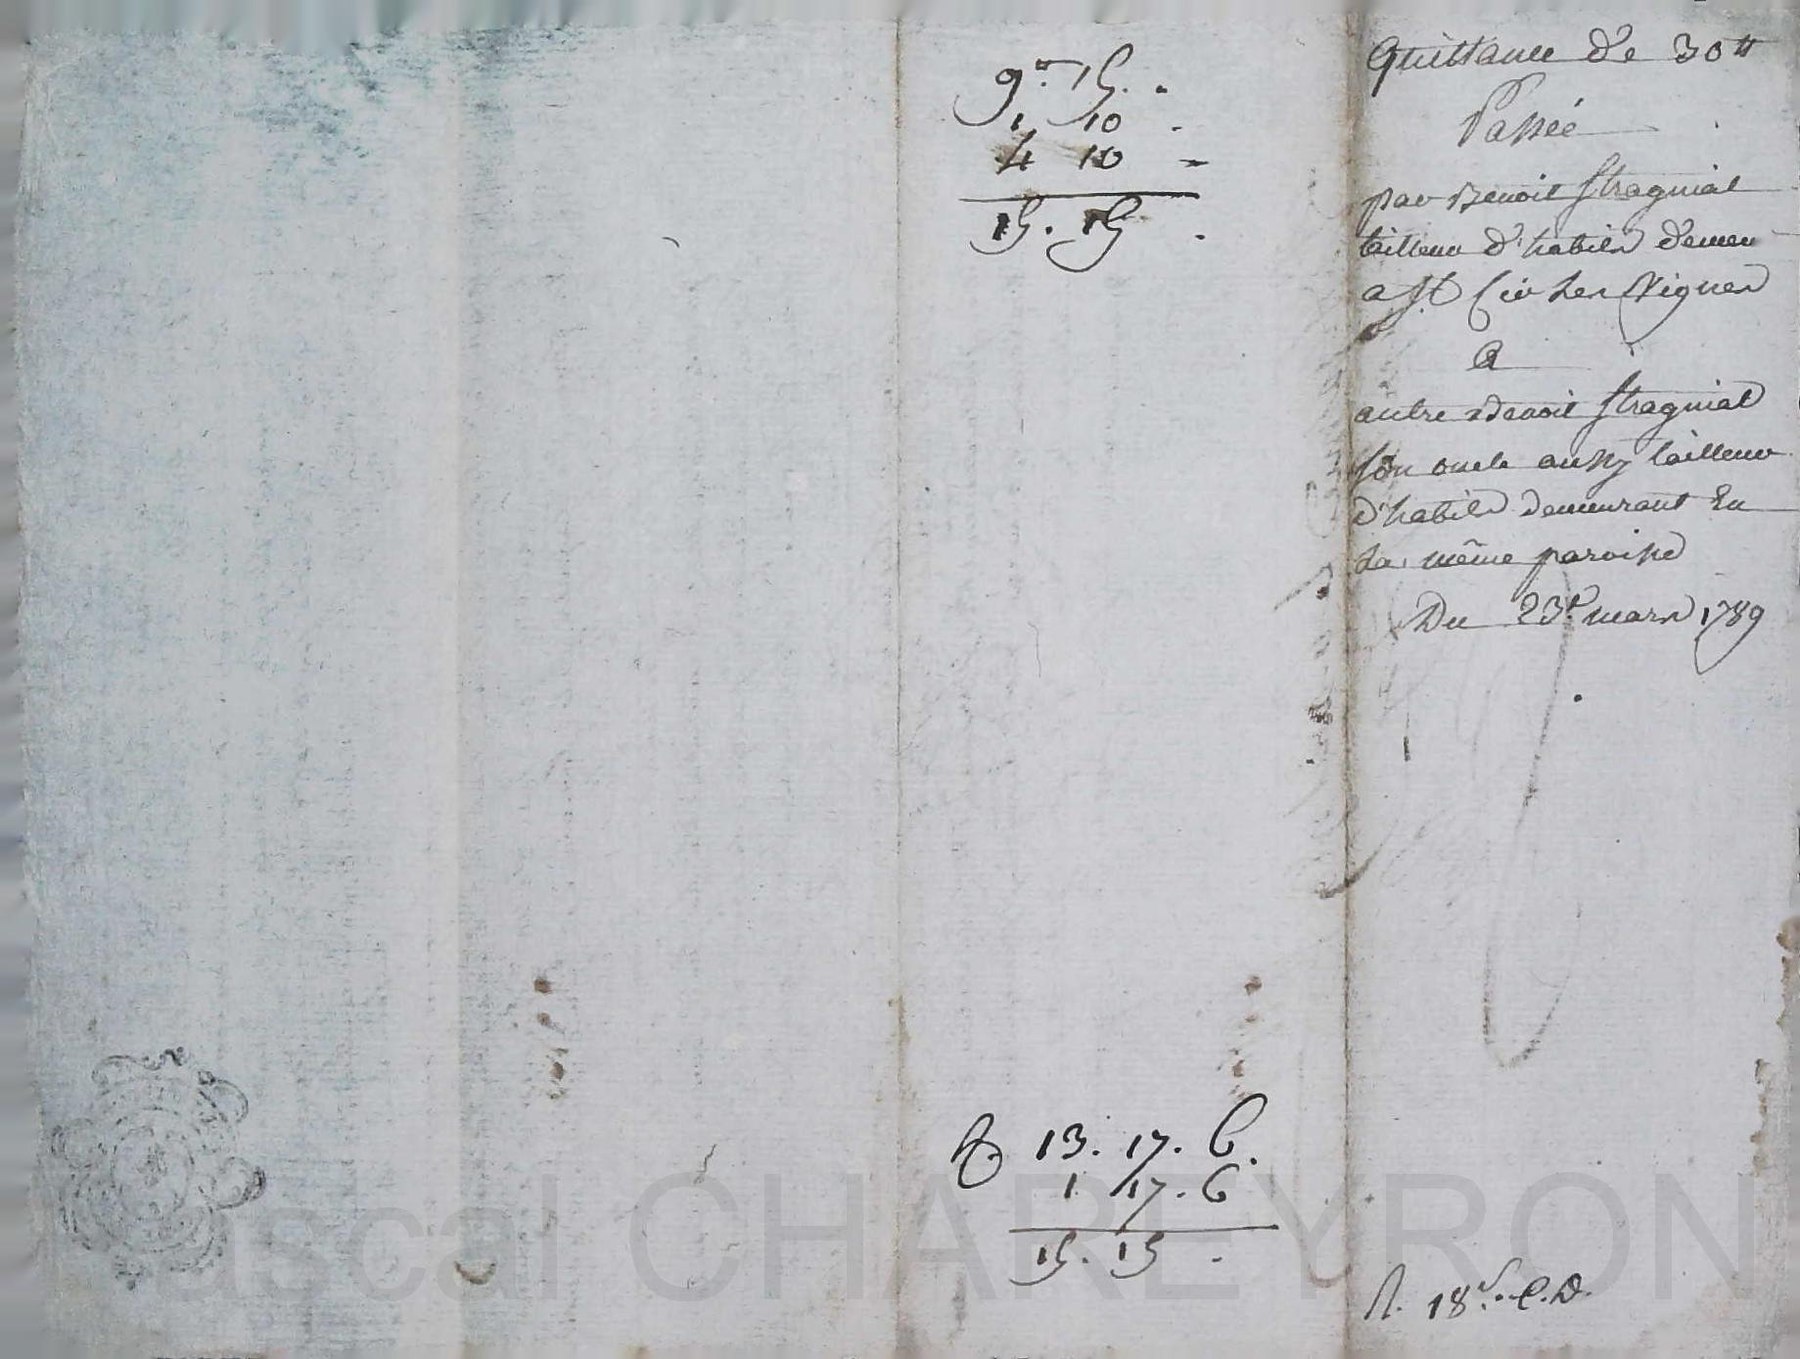 9# 15. .
1 10 .
4 10 -
15. 15 .
13. 17. 6.
1 17. 6
15. 15 .
Quittance de 30#
Passée
par Benoit Stragniat
tailleur d'habits demeu
a St Cir Les Vignes
A
autre Benoit Stragniat
son oncle aussy tailleur
d'habits demeurant En
La même paroisse
Du 23e mars 1789
18s. C.D.
Pascal CHAREYRON